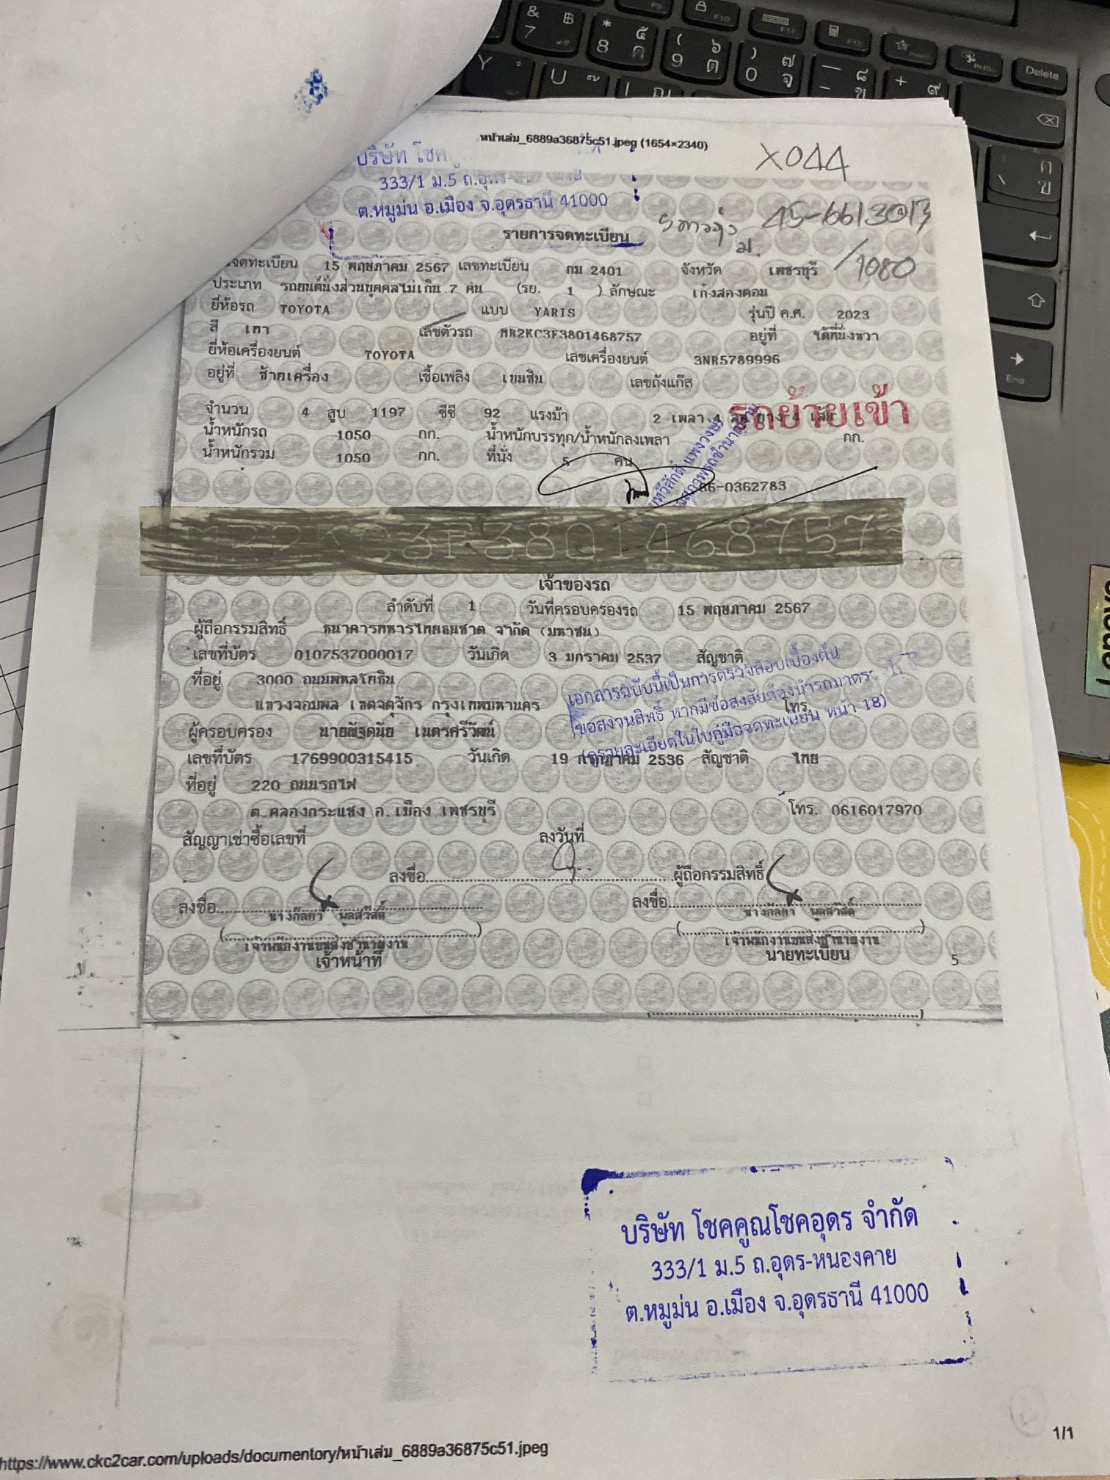 & 7 ฿
* 8 ๕ ค
( 9 ๖ ต
) 0 ๗ จ
Delete
Y
U
End
หน้าเล่ม_6889a36875c51.jpeg (1654×2340)
X044
บริษัท โชค
333/1 ม.5 ถ.อุดร
ต.หมูม่น อ.เมือง จ.อุดรธานี 41000
รายการจดทะเบียน
/1080
จดทะเบียน 15 พฤษภาคม 2567 เลขทะเบียน กม 2401 จังหวัด เพชรบุรี
ประเภท รถยนต์นั่งส่วนบุคคลไม่เกิน 7 คน (รย. 1 ) ลักษณะ เก๋งสองตอน
ยี่ห้อรถ TOYOTA แบบ YARIS รุ่นปี ค.ศ. 2023
สี เทา เลขตัวรถ MR2KC3F3801468757 อยู่ที่ ใต้ที่นั่งขวา
ยี่ห้อเครื่องยนต์ TOYOTA เลขเครื่องยนต์ 3NR5789996
อยู่ที่ ซ้ายเครื่อง เชื้อเพลิง เบนซิน เลขถังแก๊ส
จำนวน 4 สูบ 1197 ซีซี 92 แรงม้า 2 เพลา 4 ล้อ ยาง 4 เส้น
รถย้ายเข้า
น้ำหนักรถ 1050 กก. น้ำหนักบรรทุก/น้ำหนักลงเพลา กก.
น้ำหนักรวม 1050 กก. ที่นั่ง 5 คน
66-0362783
2KC3F3801468757
เจ้าของรถ
ลำดับที่ 1 วันที่ครอบครองรถ 15 พฤษภาคม 2567
ผู้ถือกรรมสิทธิ์ ธนาคารทหารไทยธนชาต จำกัด (มหาชน)
เลขที่บัตร 0107537000017 วันเกิด 3 มกราคม 2537 สัญชาติ
ที่อยู่ 3000 ถนนพหลโยธิน
แขวงจอมพล เขตจตุจักร กรุงเทพมหานคร โทร.
เอกสารฉบับนี้เป็นการตรวจสอบเบื้องต้น
ขอสงวนสิทธิ์ หากมีข้อสงสัยต้องนำรถมาตรวจ
(ดูรายละเอียดในใบคู่มือจดทะเบียน หน้า 18)
ผู้ครอบครอง นายณัฐดนัย เนตรศรีวัฒน์
เลขที่บัตร 1769900315415 วันเกิด 19 กรกฎาคม 2536 สัญชาติ ไทย
ที่อยู่ 220 ถนนรถไฟ
ต.คลองกระแชง อ.เมือง เพชรบุรี โทร. 0616017970
สัญญาเช่าซื้อเลขที่ ลงวันที่
ลงชื่อ ผู้ถือกรรมสิทธิ์
ลงชื่อ นางกัลยา พูลสวัสดิ์ ลงชื่อ นางกัลยา พูลสวัสดิ์
เจ้าพนักงานขนส่งชำนาญงาน เจ้าพนักงานขนส่งชำนาญงาน
เจ้าหน้าที่ นายทะเบียน
5
บริษัท โชคคูณโชคอุดร จำกัด
333/1 ม.5 ถ.อุดร-หนองคาย
ต.หมูม่น อ.เมือง จ.อุดรธานี 41000
1/1
https://www.ckc2car.com/uploads/documentory/หน้าเล่ม_6889a36875c51.jpeg